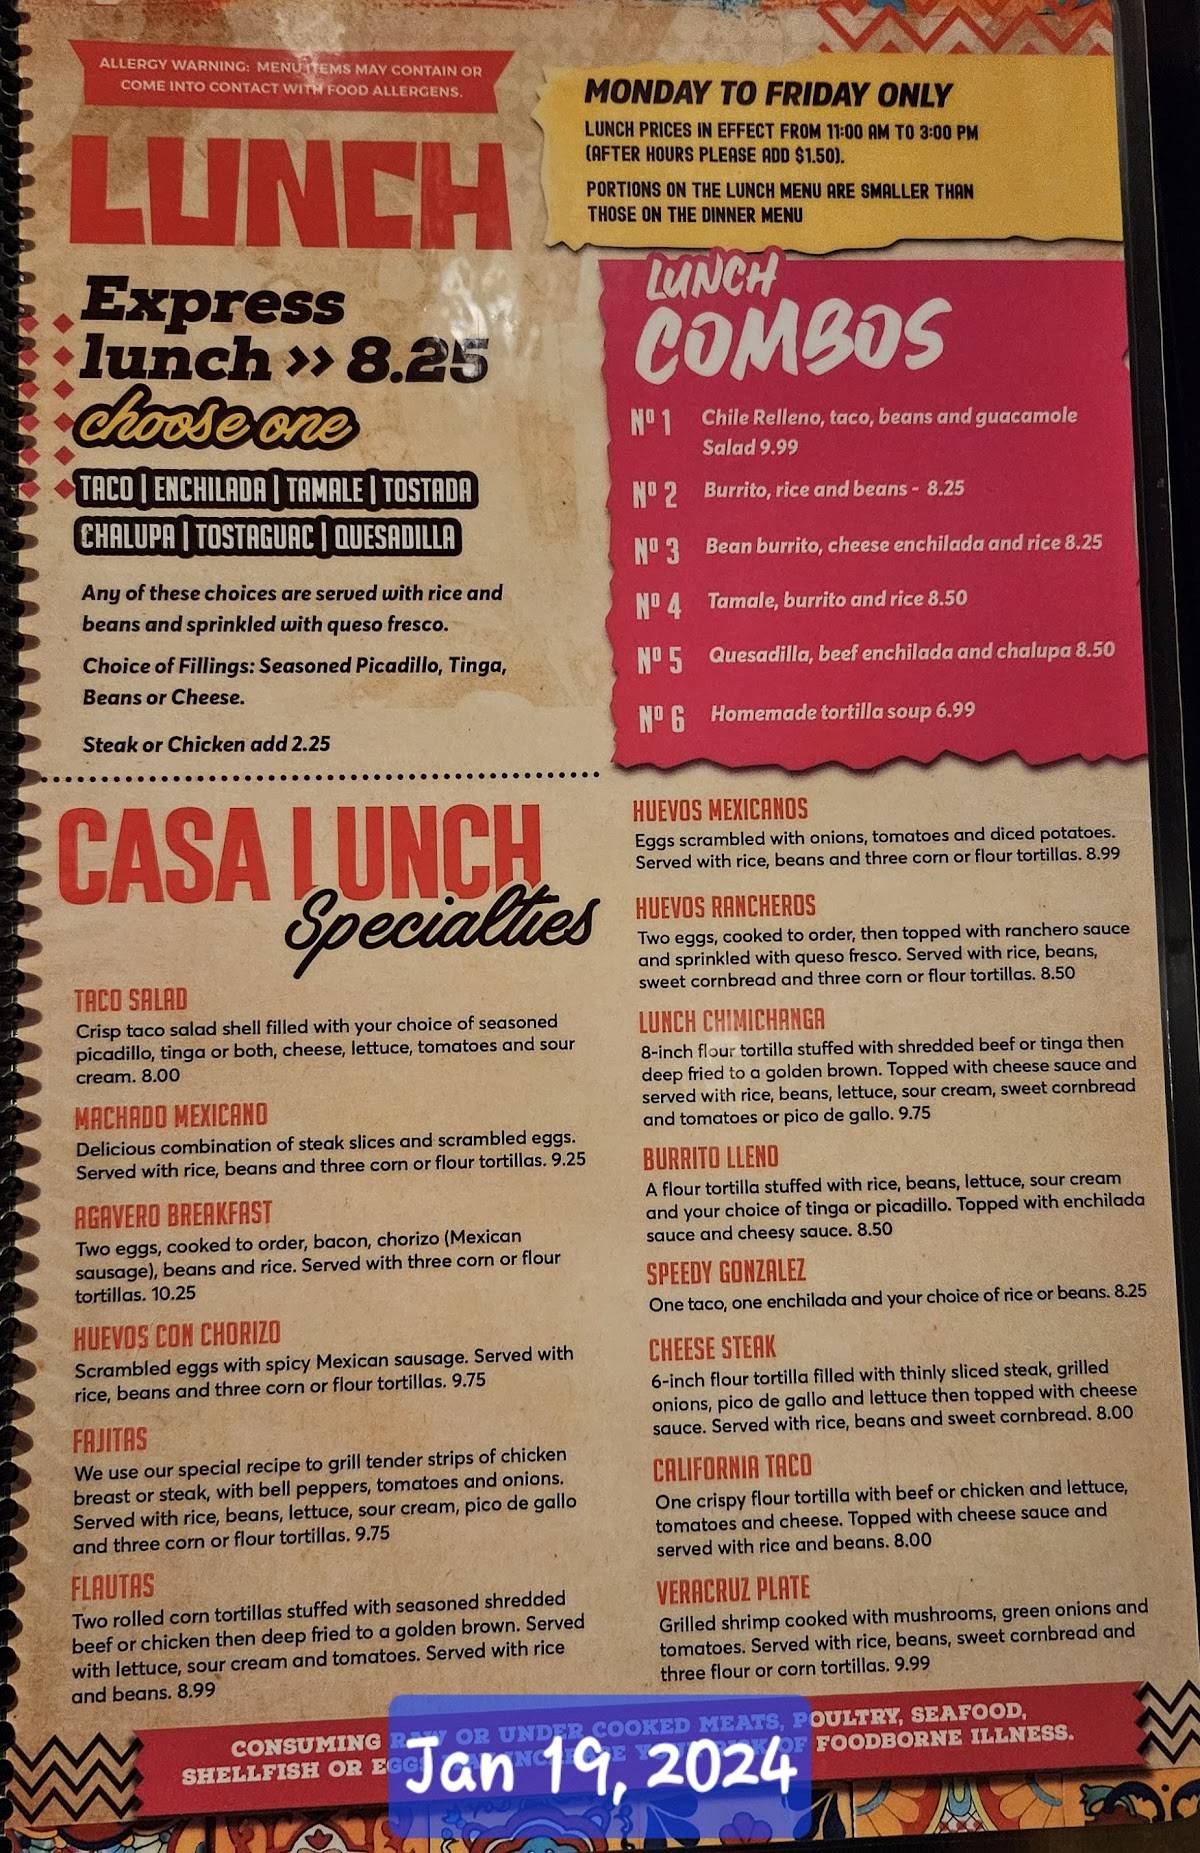 ALLERGY WARNING: MENU ITEMS MAY CONTAIN OR
COME INTO CONTACT WITH FOOD ALLERGENS.
LUNCH
MONDAY TO FRIDAY ONLY
LUNCH PRICES IN EFFECT FROM 11:00 AM TO 3:00 PM
(AFTER HOURS PLEASE ADD $1.50).
PORTIONS ON THE LUNCH MENU ARE SMALLER THAN
THOSE ON THE DINNER MENU
Express
lunch >> 8.25
choose one
TACO | ENCHILADA | TAMALE | TOSTADA
CHALUPA | TOSTAGUAC | QUESADILLA
Any of these choices are served with rice and
beans and sprinkled with queso fresco.
Choice of Fillings: Seasoned Picadillo, Tinga,
Beans or Cheese.
Steak or Chicken add 2.25
LUNCH
COMBOS
Nº 1 Chile Relleno, taco, beans and guacamole
Salad 9.99
Nº 2 Burrito, rice and beans - 8.25
Nº 3 Bean burrito, cheese enchilada and rice 8.25
Nº 4 Tamale, burrito and rice 8.50
Nº 5 Quesadilla, beef enchilada and chalupa 8.50
Nº 6 Homemade tortilla soup 6.99
CASA LUNCH
Specialties
TACO SALAD
Crisp taco salad shell filled with your choice of seasoned
picadillo, tinga or both, cheese, lettuce, tomatoes and sour
cream. 8.00
MACHADO MEXICANO
Delicious combination of steak slices and scrambled eggs.
Served with rice, beans and three corn or flour tortillas. 9.25
AGAVERO BREAKFAST
Two eggs, cooked to order, bacon, chorizo (Mexican
sausage), beans and rice. Served with three corn or flour
tortillas. 10.25
HUEVOS CON CHORIZO
Scrambled eggs with spicy Mexican sausage. Served with
rice, beans and three corn or flour tortillas. 9.75
FAJITAS
We use our special recipe to grill tender strips of chicken
breast or steak, with bell peppers, tomatoes and onions.
Served with rice, beans, lettuce, sour cream, pico de gallo
and three corn or flour tortillas. 9.75
FLAUTAS
Two rolled corn tortillas stuffed with seasoned shredded
beef or chicken then deep fried to a golden brown. Served
with lettuce, sour cream and tomatoes. Served with rice
and beans. 8.99
HUEVOS MEXICANOS
Eggs scrambled with onions, tomatoes and diced potatoes.
Served with rice, beans and three corn or flour tortillas. 8.99
HUEVOS RANCHEROS
Two eggs, cooked to order, then topped with ranchero sauce
and sprinkled with queso fresco. Served with rice, beans,
sweet cornbread and three corn or flour tortillas. 8.50
LUNCH CHIMICHANGA
8-inch flour tortilla stuffed with shredded beef or tinga then
deep fried to a golden brown. Topped with cheese sauce and
served with rice, beans, lettuce, sour cream, sweet cornbread
and tomatoes or pico de gallo. 9.75
BURRITO LLENO
A flour tortilla stuffed with rice, beans, lettuce, sour cream
and your choice of tinga or picadillo. Topped with enchilada
sauce and cheesy sauce. 8.50
SPEEDY GONZALEZ
One taco, one enchilada and your choice of rice or beans. 8.25
CHEESE STEAK
6-inch flour tortilla filled with thinly sliced steak, grilled
onions, pico de gallo and lettuce then topped with cheese
sauce. Served with rice, beans and sweet cornbread. 8.00
CALIFORNIA TACO
One crispy flour tortilla with beef or chicken and lettuce,
tomatoes and cheese. Topped with cheese sauce and
served with rice and beans. 8.00
VERACRUZ PLATE
Grilled shrimp cooked with mushrooms, green onions and
tomatoes. Served with rice, beans, sweet cornbread and
three flour or corn tortillas. 9.99
CONSUMING RAW OR UNDER COOKED MEATS, POULTRY, SEAFOOD,
SHELLFISH OR EGGS OF FOODBORNE ILLNESS.
Jan 19, 2024